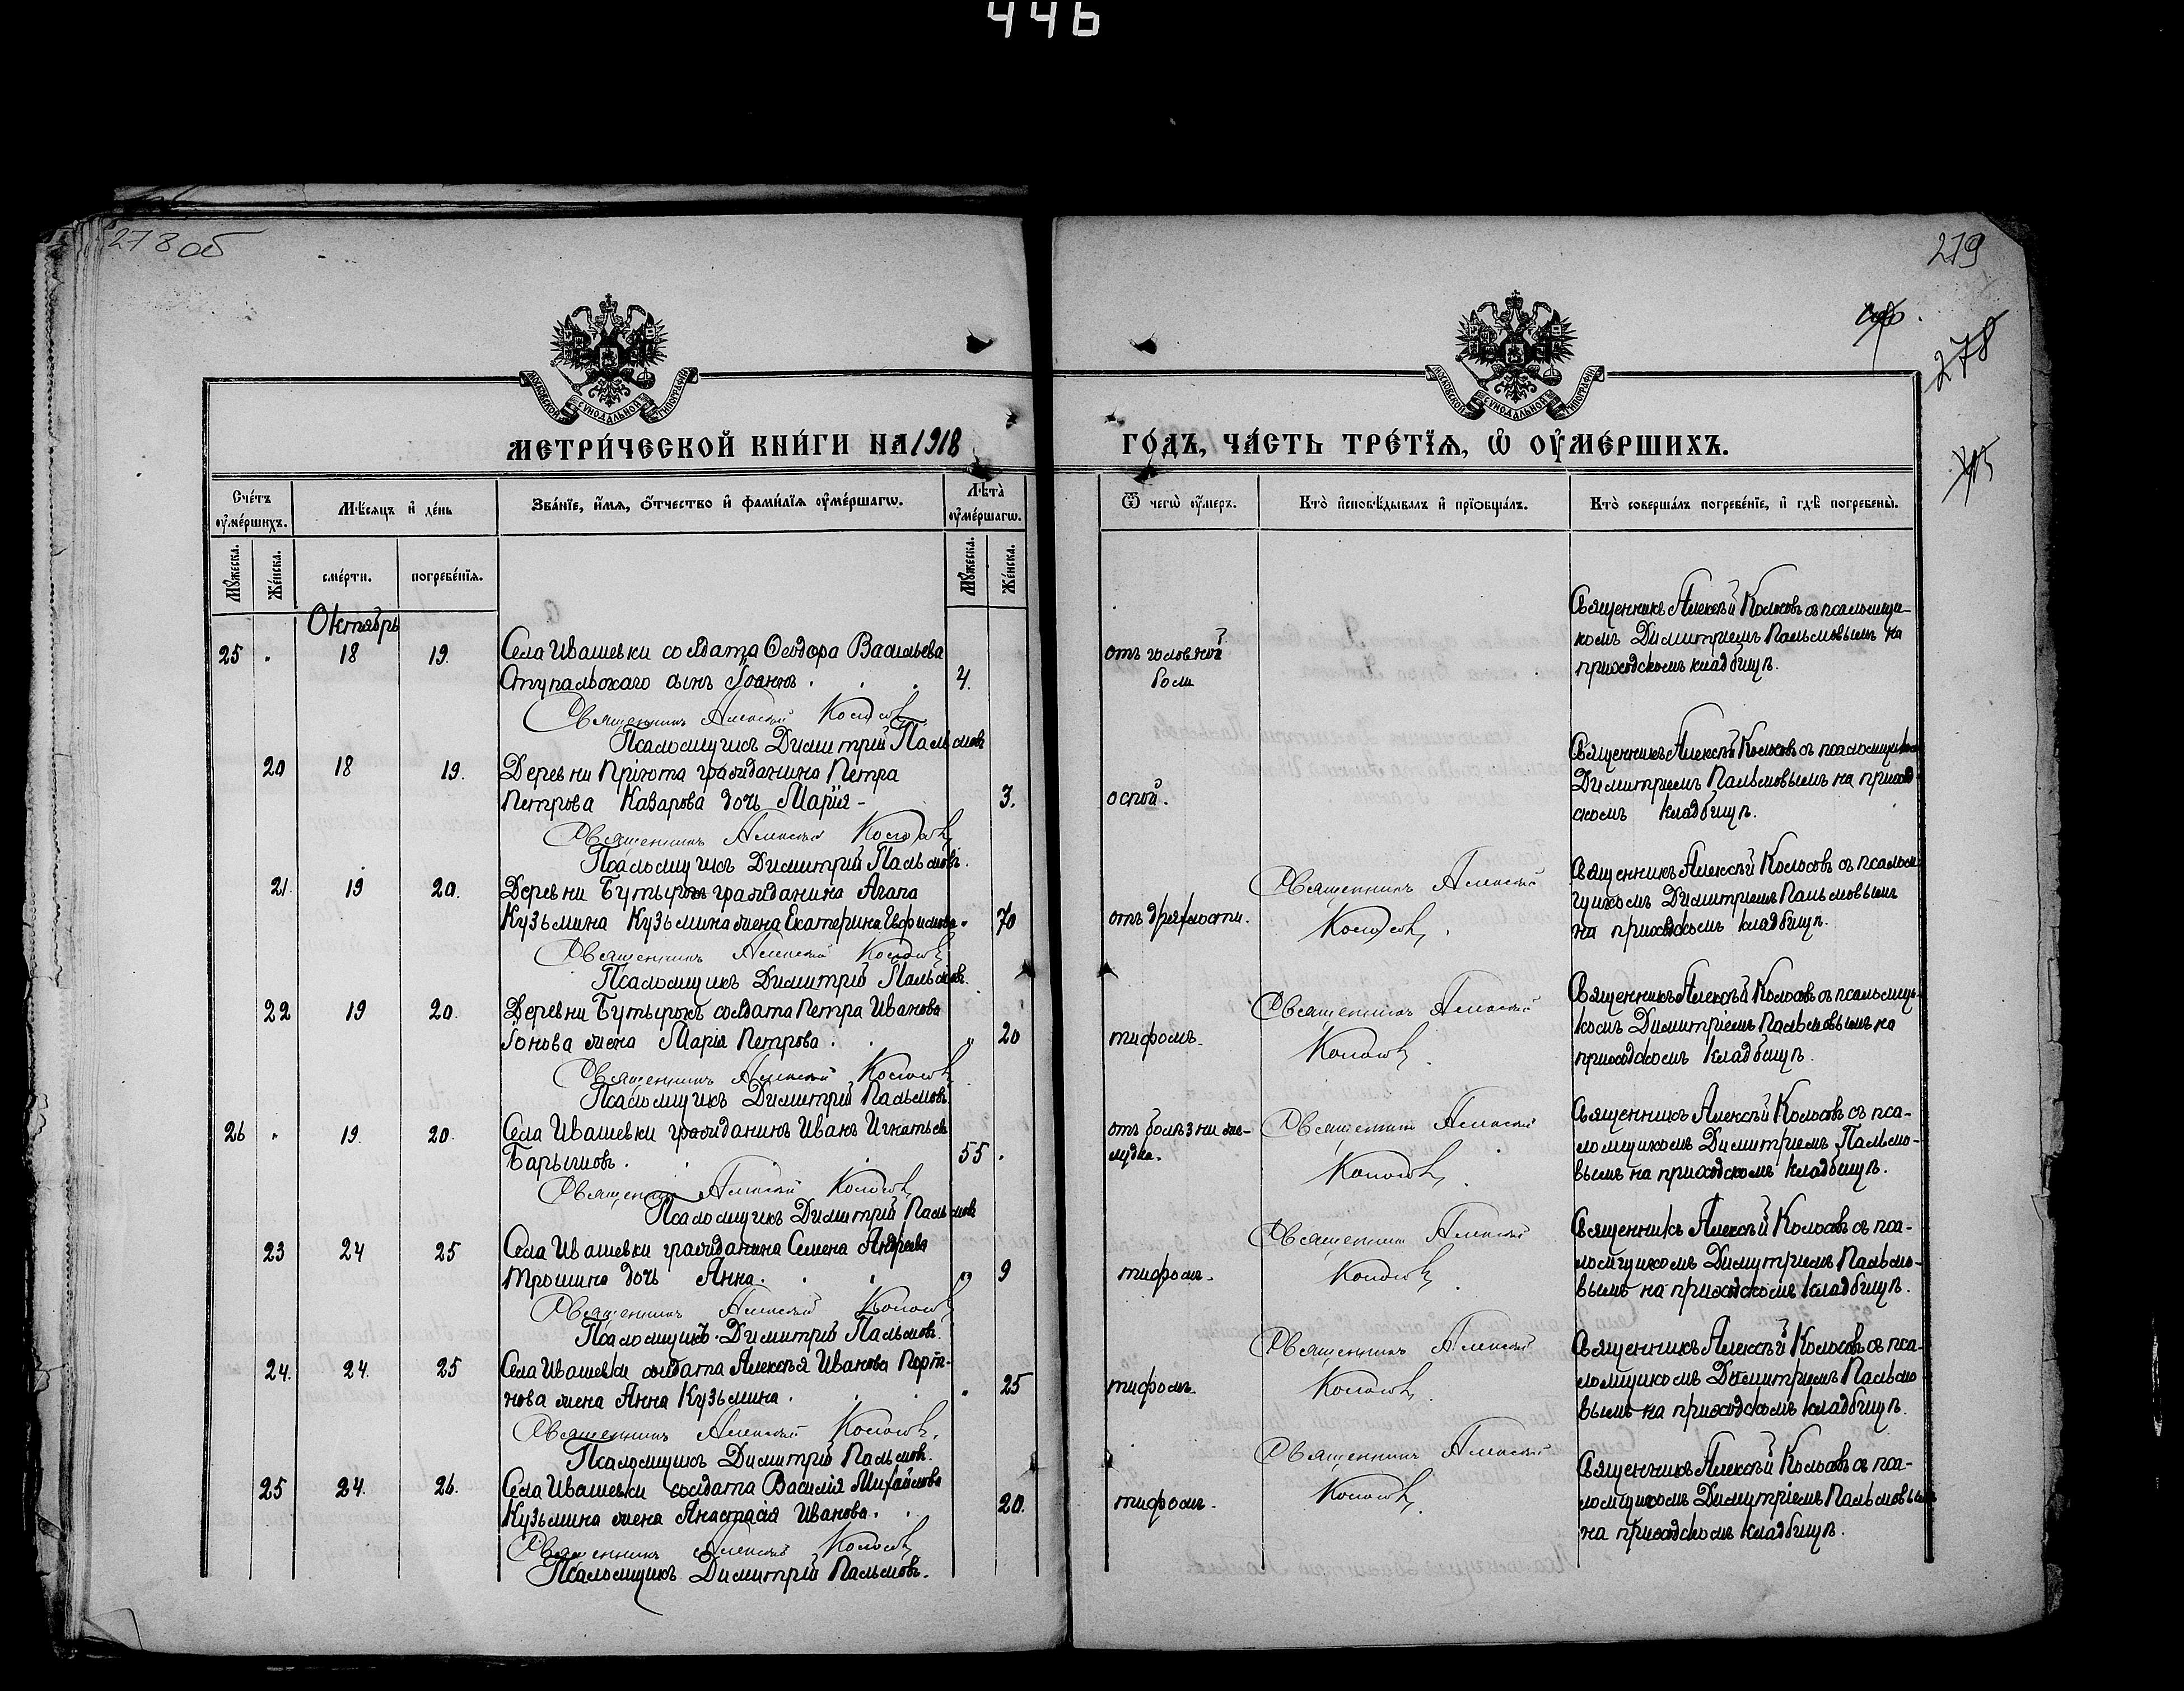 446
278 об
279
278
МОСКОВСКОЙ СѴНОДАЛЬНОЙ ТИПОГРАФІИ
МОСКОВСКОЙ СѴНОДАЛЬНОЙ ТИПОГРАФІИ
МЕТРИ́ЧЕСКОЙ КНИ́ГИ НА 1918
ГО́ДЪ, ЧА́СТЬ ТРЕ́ТЇѦ, Ѡ҆ ОУ҆МЕ́РШИХЪ.
Сче́тъ оу҆ме́ршихъ.
Мѣ́сяцъ и҆ де́нь
Зва́нїе, и҆́мѧ, ѻ҆́тчество и҆ фами́лїѧ оу҆ме́ршагѡ.
Лѣ́та оу҆ме́ршагѡ.
Ѿ чегѡ̀ оу҆́меръ.
Кто̀ и҆сповѣ́дывалъ и҆ прїѡбща́лъ.
Кто̀ соверша́лъ погребе́нїе, и҆ гдѣ̀ погребены̀.
Мꙋ́жеска.
Же́нска.
сме́рти.
погребе́нїѧ.
Мꙋ́жеска.
Же́нска.
Октябрь
25 " 18 19. Села Ивашевки солдата Ѳеодора Васильева
Ступальскаго сынъ Іоаннъ . . . 4.
Священникъ Алексѣй Колосовъ
Псаломщикъ Димитрій Пальмовъ
отъ головной
боли
Священникъ Алексѣй Колосовъ съ псаломщи-
комъ Димитріемъ Пальмовымъ на
приходскомъ кладбищѣ.
20 18 19. Деревни Пріюта гражданина Петра
Петрова Казарова дочь Марія - 3.
Священникъ Алексѣй Колосовъ
Псаломщикъ Димитрій Пальмовъ.
оспой.
Священникъ Алексѣй Колосовъ съ псаломщикомъ
Димитріемъ Пальмовымъ на приход-
скомъ кладбищѣ.
21. 19 20. Деревни Бутырокъ гражданина Агапа
Кузьмина Кузьмина жена Екатерина Евфимова " 70
Священникъ Алексѣй Колосовъ
Псаломщикъ Димитрій Пальмовъ.
отъ дряхлости.
Священникъ Алексѣй
Колосовъ.
Священникъ Алексѣй Колосовъ съ псалом-
щикомъ Димитріемъ Пальмовымъ
на приходскомъ кладбищѣ.
22 19 20. Деревни Бутырокъ солдата Петра Иванова
жена Марія Петрова . . " 20
Священникъ Алексѣй Колосовъ
Псаломщикъ Димитрій Пальмовъ.
тифомъ.
Священникъ Алексѣй
Колосовъ.
Священникъ Алексѣй Колосовъ съ псаломщи-
комъ Димитріемъ Пальмовымъ на
приходскомъ кладбищѣ.
26 " 19. 20. Села Ивашевки гражданинъ Иванъ Игнатьевъ
Барышовъ . . . 55 "
Священникъ Алексѣй Колосовъ
Псаломщикъ Димитрій Пальмовъ
отъ болѣзни же-
лудка.
Священникъ Алексѣй
Колосовъ.
Священникъ Алексѣй Колосовъ съ пса-
ломщикомъ Димитріемъ Пальмо-
вымъ на приходскомъ кладбищѣ.
23 24 25 Села Ивашевки гражданина Семена Андреева
Трошина дочь Анна . . . " 9
Священникъ Алексѣй Колосовъ
Псаломщикъ Димитрій Пальмовъ.
тифомъ.
Священникъ Алексѣй
Колосовъ.
Священникъ Алексѣй Колосовъ съ пса-
ломщикомъ Димитріемъ Пальмо-
вымъ на приходскомъ кладбищѣ.
24. 24. 25 Села Ивашевки солдата Алексѣя Иванова Порт-
нова жена Анна Кузьмина . . . " 25
Священникъ Алексѣй Колосовъ.
Псаломщикъ Димитрій Пальмовъ.
тифомъ.
Священникъ Алексѣй
Колосовъ.
Священникъ Алексѣй Колосовъ съ пса-
ломщикомъ Димитріемъ Пальмо-
вымъ на приходскомъ кладбищѣ.
25 24. 26. Села Ивашевки солдата Василія Михайлова
Кузьмина жена Анастасія Иванова . . 20.
Священникъ Алексѣй Колосовъ
Псаломщикъ Димитрій Пальмовъ.
тифомъ.
Священникъ Алексѣй
Колосовъ.
Священникъ Алексѣй Колосовъ съ пса-
ломщикомъ Димитріемъ Пальмовымъ
на приходскомъ кладбищѣ.